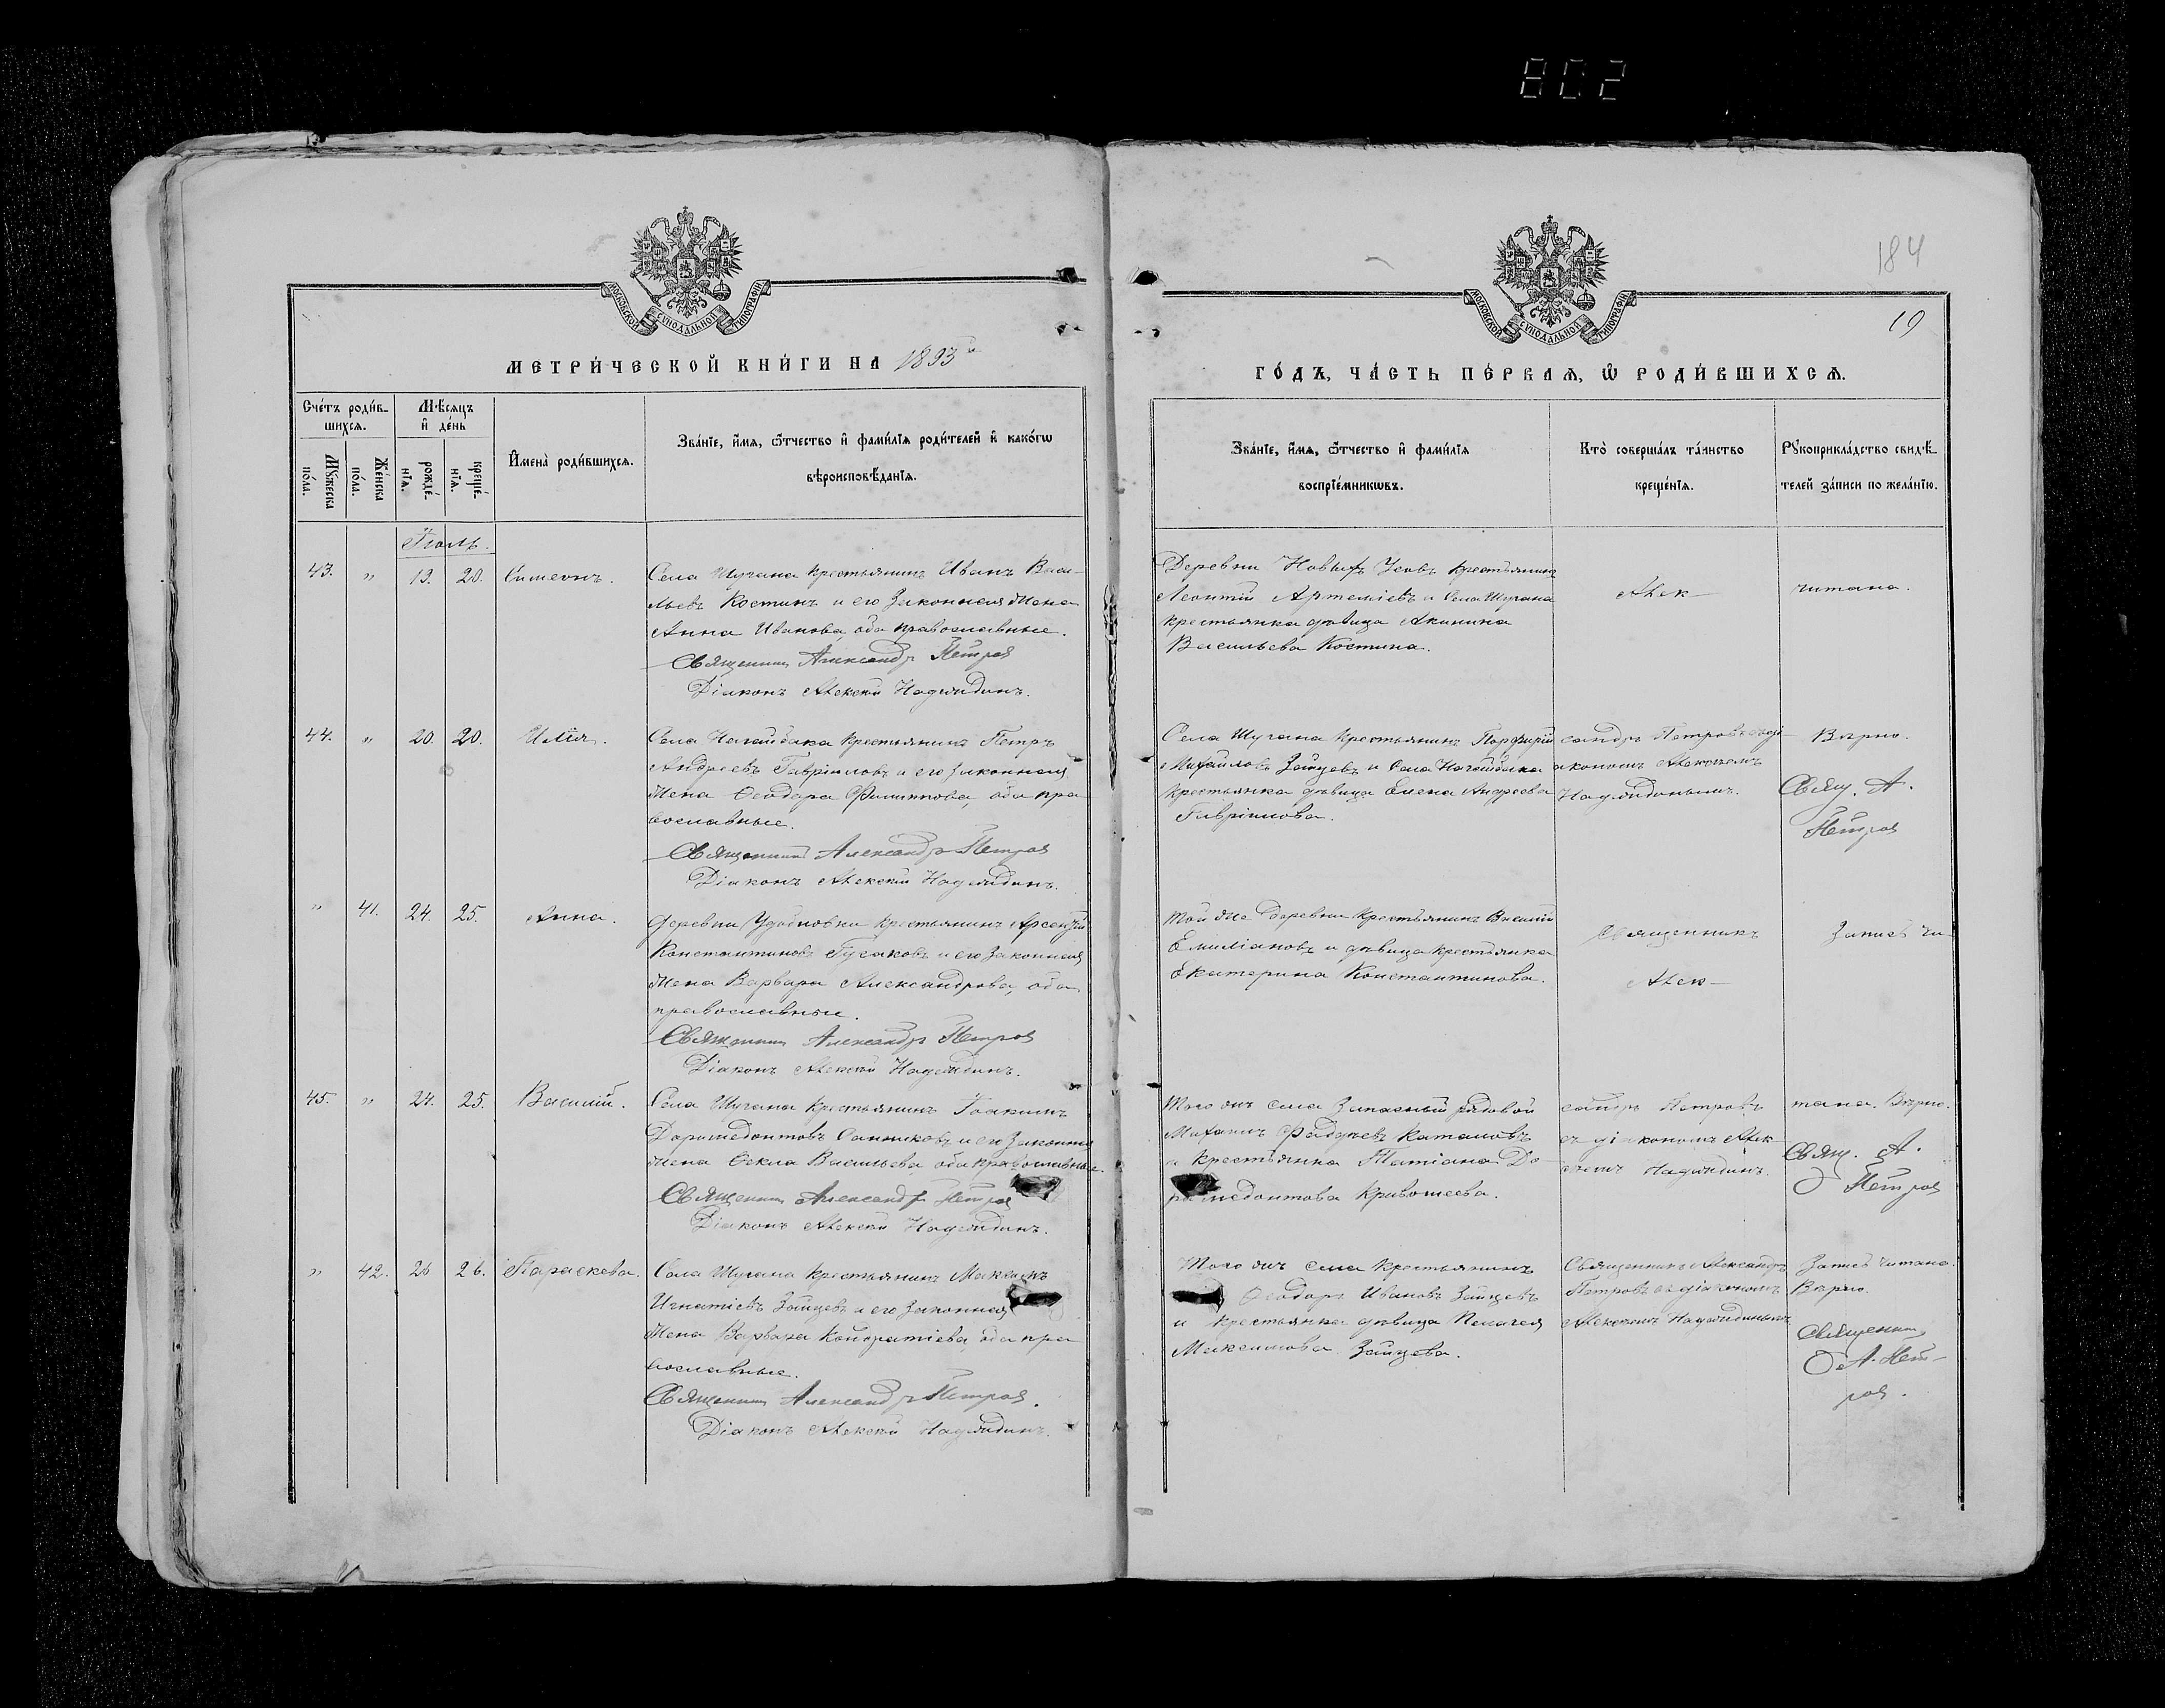 802
184
19
МОСКОВСКОЙ СѴНОДАЛЬНОЙ ТИПОГРАФІИ
МОСКОВСКОЙ СѴНОДАЛЬНОЙ ТИПОГРАФІИ
МЕТРИ́ЧЕСКОЙ КНИ́ГИ НА 1893й
ГО́ДЪ, ЧА́СТЬ ПЕ́РВАЯ, Ѿ РОДИ́ВШИХСЯ.
Сче́тъ роди́в-
шихся.
Мꙋ́жеска
по́ла.
Же́нска
по́ла.
Мѣ́сяцъ
и҆ де́нь
рожде́-
нїя.
креще́-
нїя.
И҆мена̀ роди́вшихся.
Зва́нїе, и҆́мя, ѻ҆́тчество и҆ фами́лїя роди́телей и҆ како́гѡ
вѣроисповѣ́данїя.
Зва́нїе, и҆́мя, ѻ҆́тчество и҆ фами́лїя
воспрїе́мникѡвъ.
Кто̀ соверша́лъ та́инство
креще́нїя.
Рꙋкоприкла́дство свидѣ́-
телей за́писи по жела́нїю.
Іюль.
43. " 19. 20. Симеонъ.
Села Шугана крестьянинъ Иванъ Васи-
льевъ Костинъ и его законная жена
Анна Иванова, оба православные.
Священникъ Александръ Петровъ
Діаконъ Алексѣй Надеждинъ.
Деревни Новыхъ Усовъ крестьянинъ
Леонтій Артеміевъ и села Шугана
крестьянка дѣвица Акилина
Васильева Костина.
Алек-
читана.
44. " 20. 20. Илія.
Села Нагайбака крестьянинъ Петръ
Андреевъ Гавріиловъ и его законная
жена Ѳеодора Филиппова, оба пра-
вославные.
Священникъ Александръ Петровъ
Діаконъ Алексѣй Надеждинъ.
Села Шугана крестьянинъ Порфирій
Михайловъ Зайцевъ и села Нагайбака
крестьянка дѣвица Елена Андреева
Гавріилова.
сандръ Петровъ съ ді-
акономъ Алексѣемъ
Надеждинымъ.
Вѣрно.
Свящ. А.
Петровъ
" 41. 24. 25. Анна.
деревни Удобновки крестьянинъ Арсеній
Константиновъ Гусаковъ и его законная
жена Варвара Александрова, оба
православные.
Священникъ Александръ Петровъ
Діаконъ Алексѣй Надеждинъ.
Той же деревни крестьянинъ Василій
Емиліановъ и дѣвица крестьянка
Екатерина Константинова.
Священникъ
Алек-
Запись чи-
45. " 24. 25. Василій.
Села Шугана крестьянинъ Іоакимъ
Доримедонтовъ Санниковъ и его законная
жена Ѳекла Васильева оба православные.
Священникъ Александръ Петровъ
Діаконъ Алексѣй Надеждинъ.
Того же села запасный рядовой
Михаилъ Фадѣевъ Каталовъ
и крестьянка Татіана До-
римедонтова Кривошеева.
сандръ Петровъ
съ діакономъ Алек-
сѣемъ Надеждинъ.
тана. Вѣрно.
Свящ. А.
Петровъ
" 42. 26 26. Параскева.
Села Шугана крестьянинъ Максимъ
Игнатіевъ Зайцевъ и его законная
жена Варвара Кондратіева, оба пра-
вославные.
Священникъ Александръ Петровъ.
Діаконъ Алексѣй Надеждинъ.
Того же села крестьянинъ
Ѳеодоръ Ивановъ Зайцевъ
и крестьянка дѣвица Пелагея
Максимова Зайцева.
Священникъ Александръ
Петровъ съ діакономъ
Алексѣемъ Надеждинымъ
Запись читана.
Вѣрно.
Священникъ
А. Пет-
ровъ.